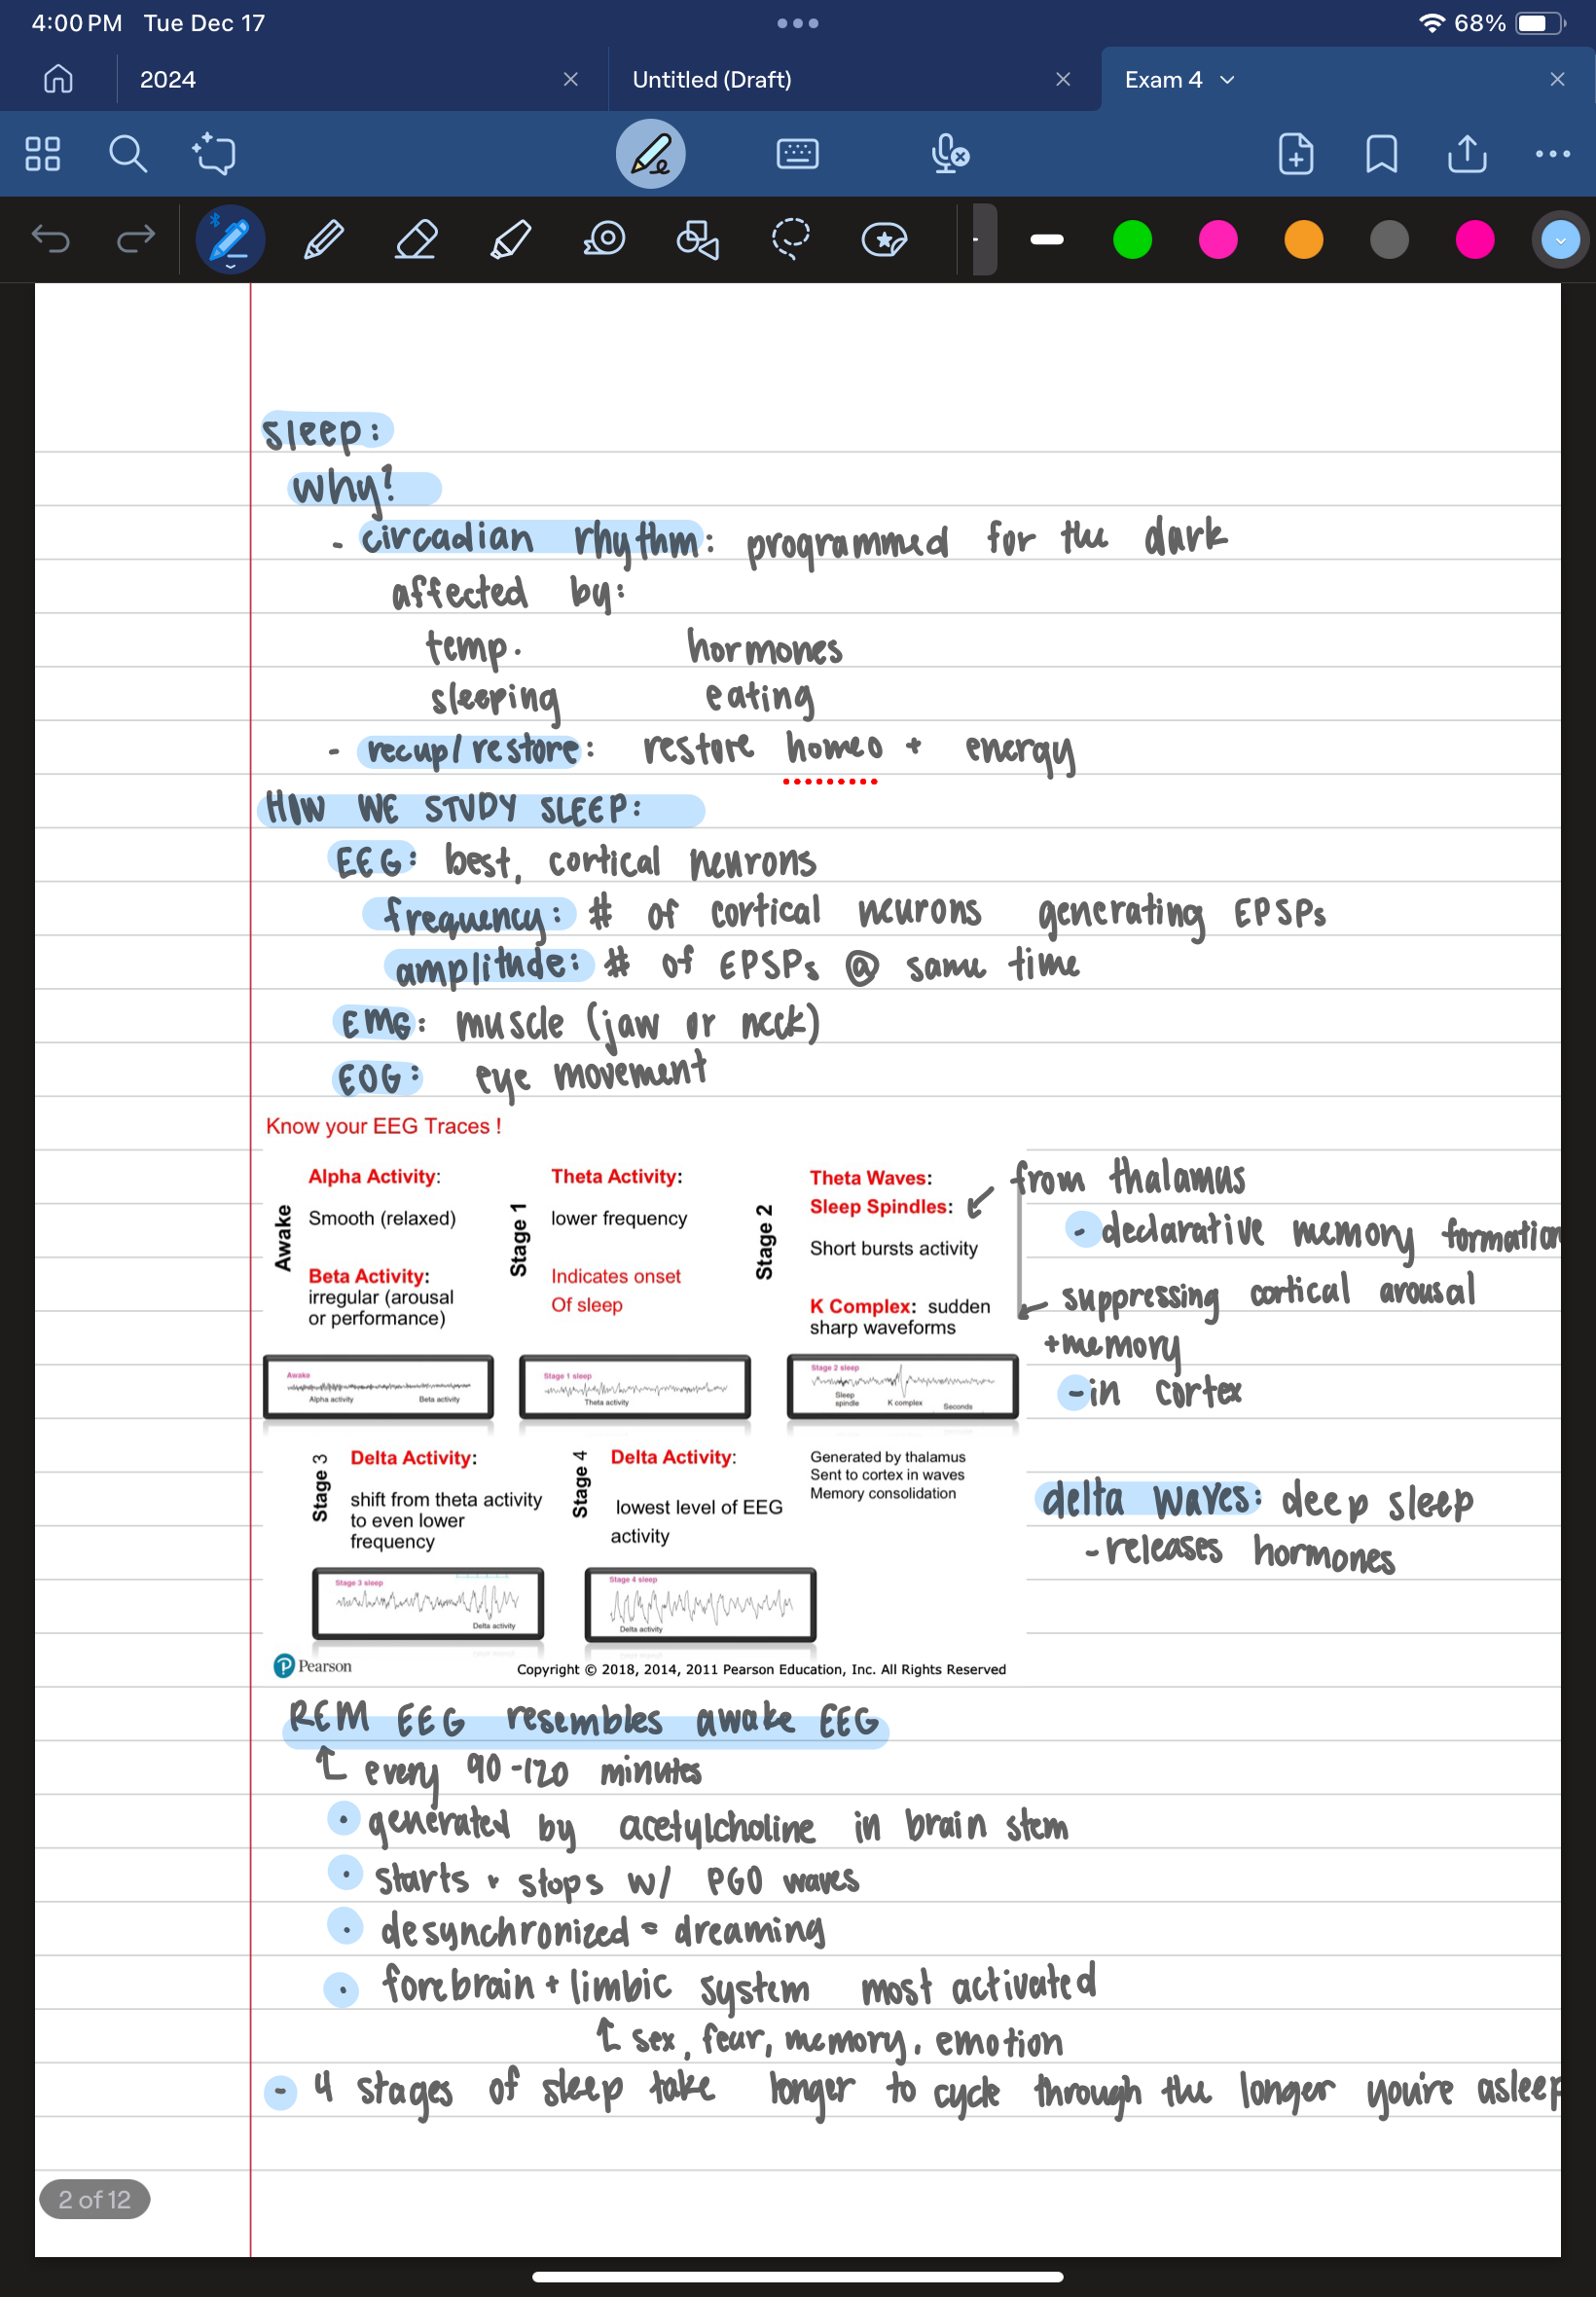 4:00 PM Tue Dec 17
68%
2024
Untitled (Draft)
Exam 4
sleep:
why?
- circadian rhythm: programmed for the dark
affected by:
temp. hormones
sleeping eating
- recup/restore: restore homeo + energy
HOW WE STUDY SLEEP:
EEG: best, cortical neurons
frequency: # of cortical neurons generating EPSPs
amplitude: # of EPSPs @ same time
EMG: muscle (jaw or neck)
EOG: eye movement
Know your EEG Traces !
Awake
Alpha Activity:
Smooth (relaxed)
Beta Activity:
irregular (arousal
or performance)
Awake
Alpha activity Beta activity
Stage 1
Theta Activity:
lower frequency
Indicates onset
Of sleep
Stage 1 sleep
Theta activity
Stage 2
Theta Waves:
Sleep Spindles:
Short bursts activity
K Complex: sudden
sharp waveforms
Stage 2 sleep
Sleep
spindle K complex Seconds
from thalamus
- declarative memory formation
suppressing cortical arousal
+memory
- in cortex
Stage 3
Delta Activity:
shift from theta activity
to even lower
frequency
Stage 3 sleep
Delta activity
Stage 4
Delta Activity:
lowest level of EEG
activity
Stage 4 sleep
Delta activity
Generated by thalamus
Sent to cortex in waves
Memory consolidation
delta waves: deep sleep
- releases hormones
Pearson
Copyright © 2018, 2014, 2011 Pearson Education, Inc. All Rights Reserved
REM EEG resembles awake EEG
every 90-120 minutes
• generated by acetylcholine in brain stem
• starts + stops w/ PGO waves
• desynchronized = dreaming
• forebrain + limbic system most activated
sex, fear, memory, emotion
- 4 stages of sleep take longer to cycle through the longer you're asleep
2 of 12